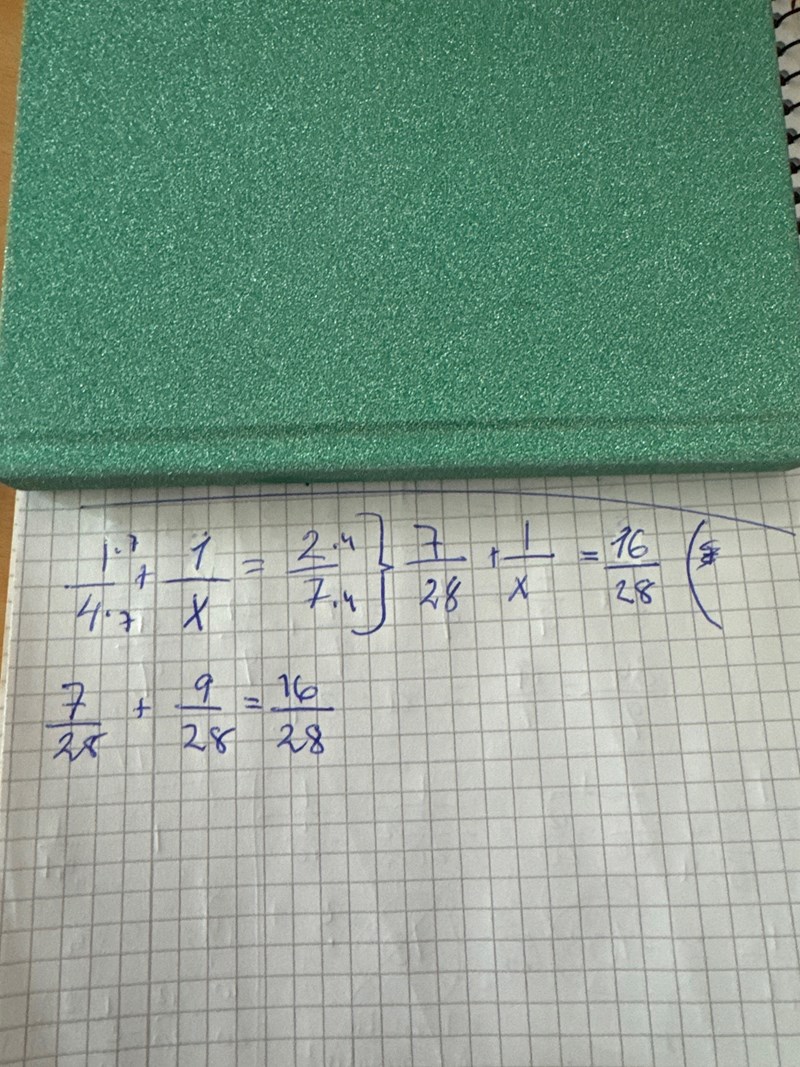 1·7/4·7 + 1/x = 2·4/7·4 } 7/28 + 1/x = 16/28 (
7/28 + 9/28 = 16/28